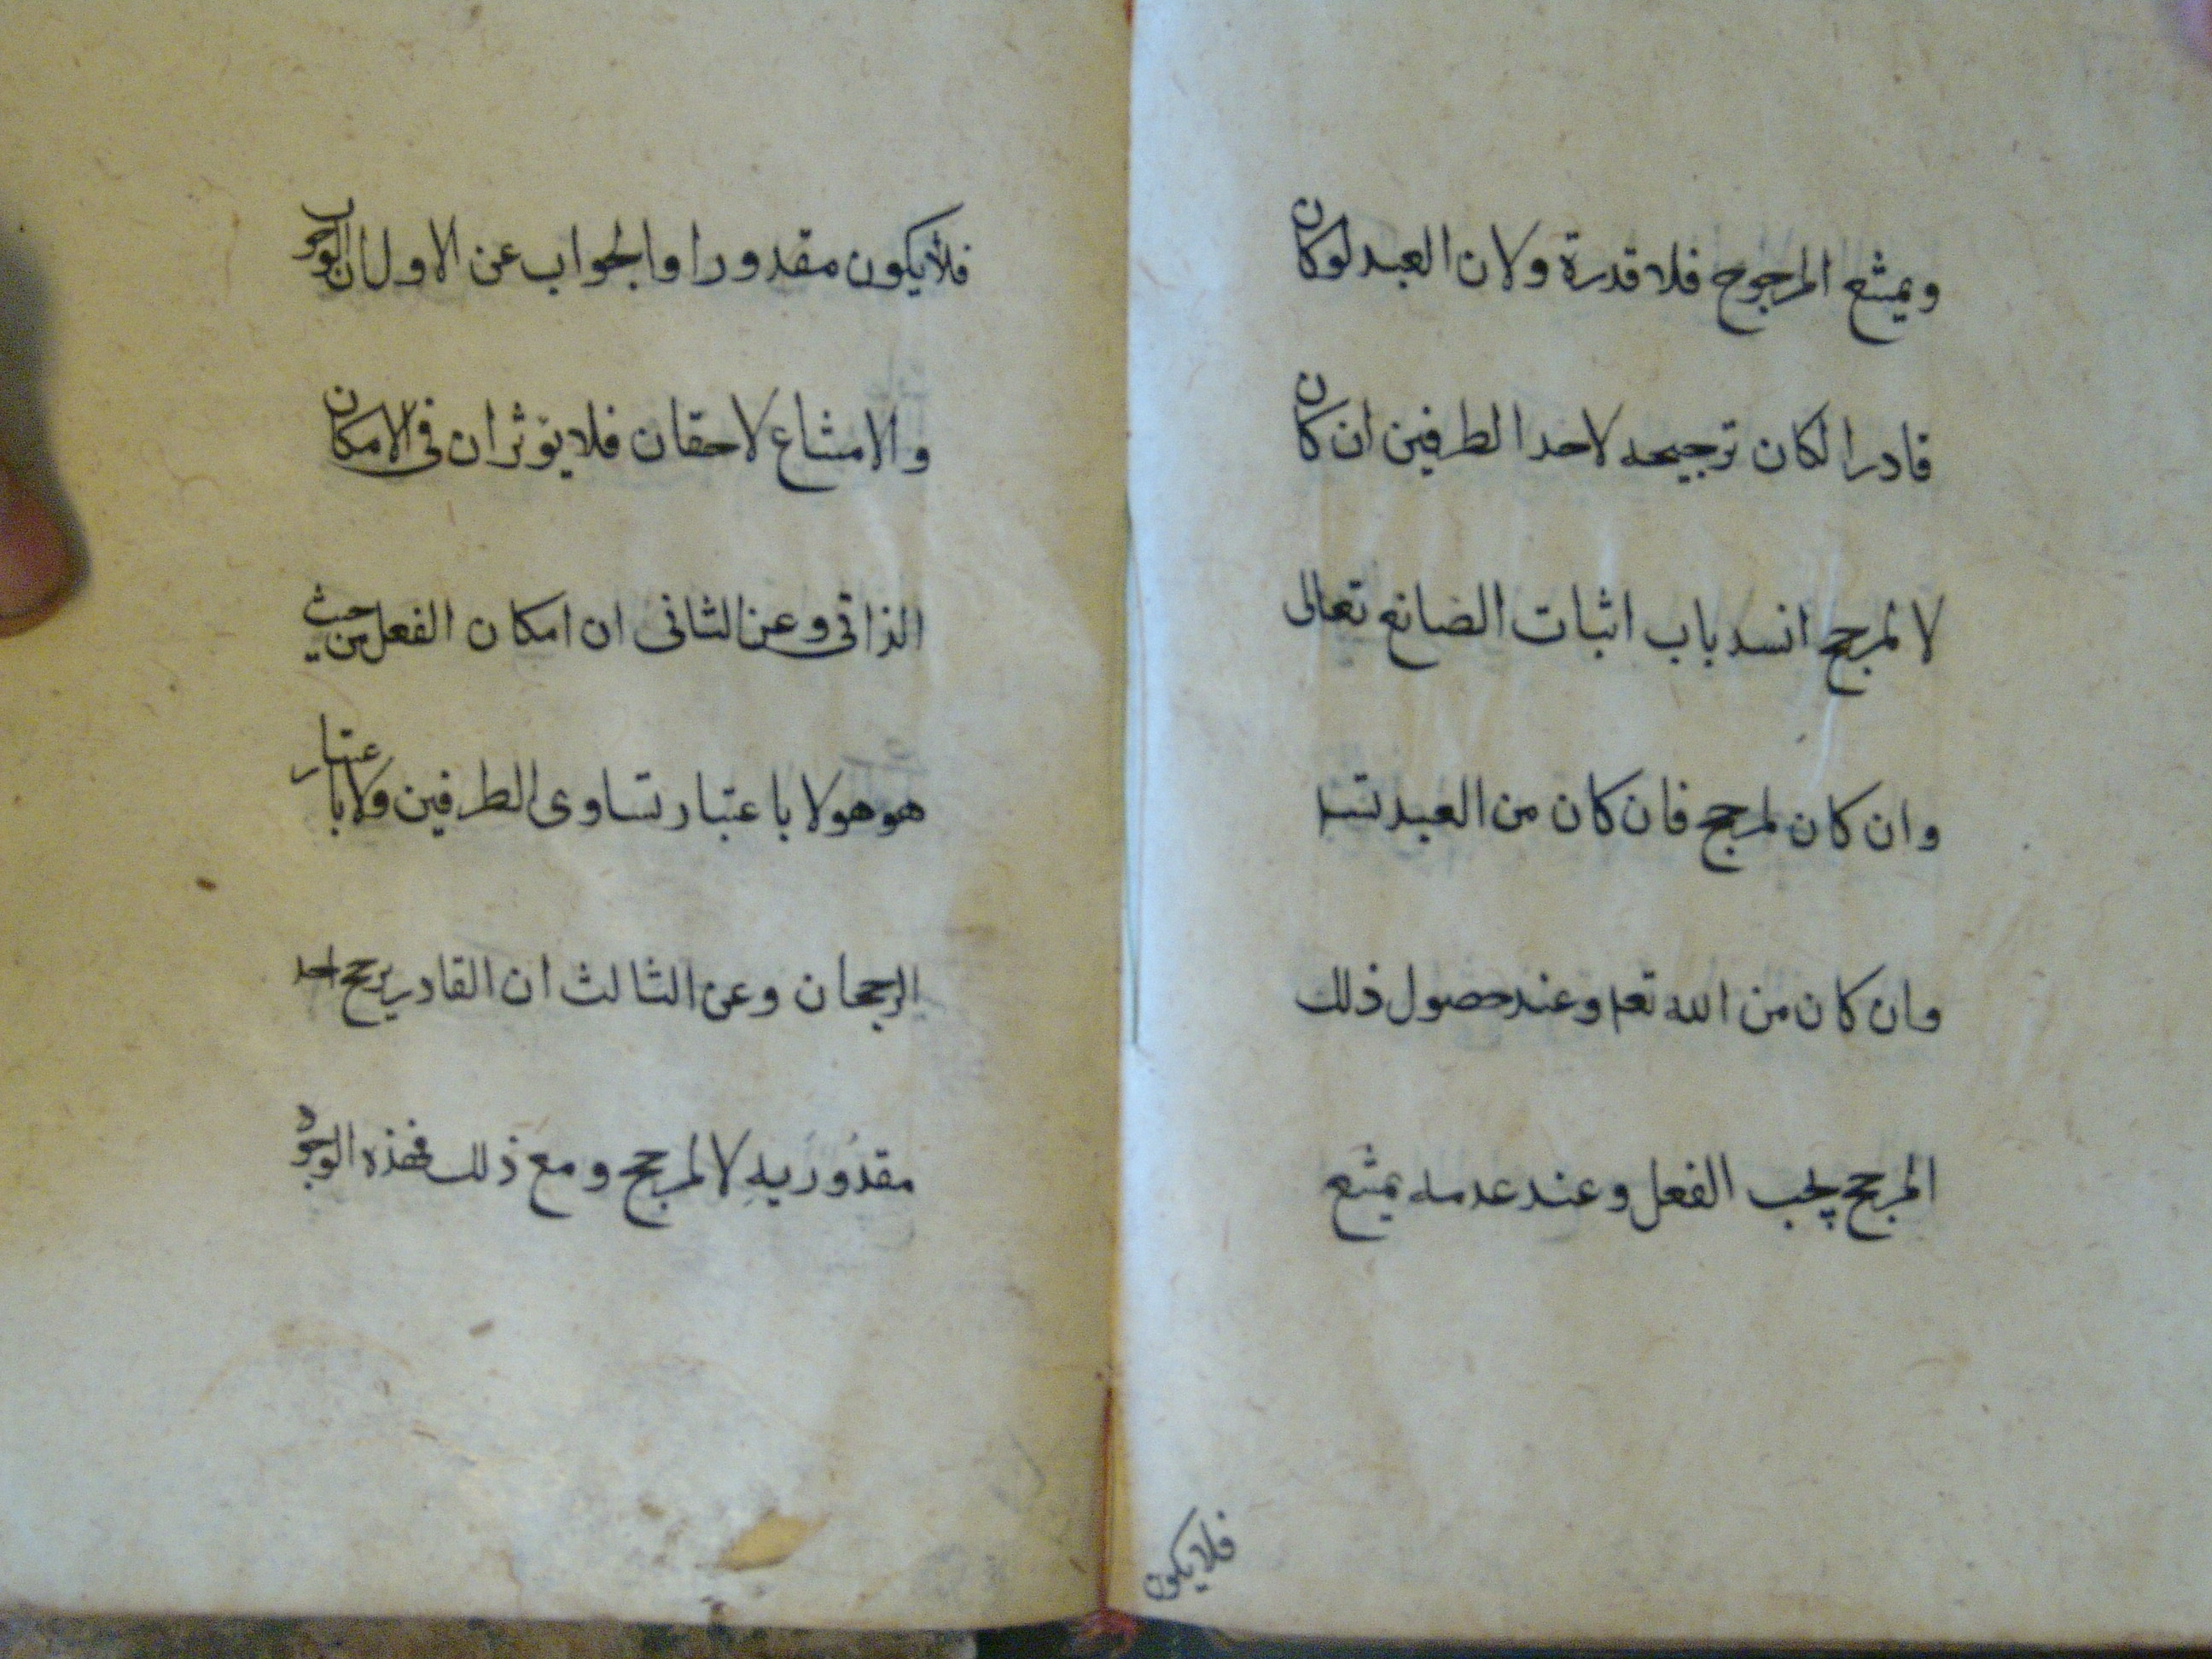 ويمتنع المرجوح فلا قدرة ولان العبد لوكان
قادرا لكان ترجيحه لاحد الطرفين ان كان
لا لمرجح انسد باب اثبات الصانع تعالى
وان كان لمرجح فان كان من العبد تسلسل
وان كان من الله تعا وعند حصول ذلك
المرجح يجب الفعل وعند عدمه يمتنع
فلايكون
فلايكون مقدورا والجواب عن الاول ان الوجوب
والامتناع لاحقان فلا يؤثران فى الامكان
الذاتى وعن الثانى ان امكان الفعل من حيث
هو هو لا باعتبار تساوى الطرفين ولا باعتبار
الرجحان وعن الثالث ان القادر يرجح احد
مقدوريه لا لمرجح ومع ذلك فهذه الوجوه